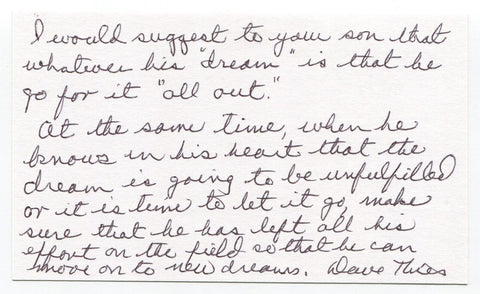 "I would suggest to your son that
whatever his "dream" is that he
go for it "all out."
At the same time, when he
knows in his heart that the
dream is going to be unfulfilled
or it is time to let it go, make
sure that he has left all his
effort on the field so that he can
move on to new dreams. Dave Thies